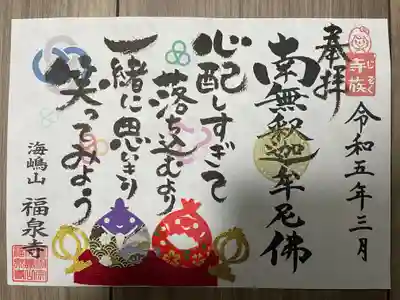 奉拝
じぞく
寺族
令和五年三月
南無釈迦牟尼佛
心配しすぎて
落ち込むより
一緒に思いきり
笑ってみよう
海嶋山 福泉寺